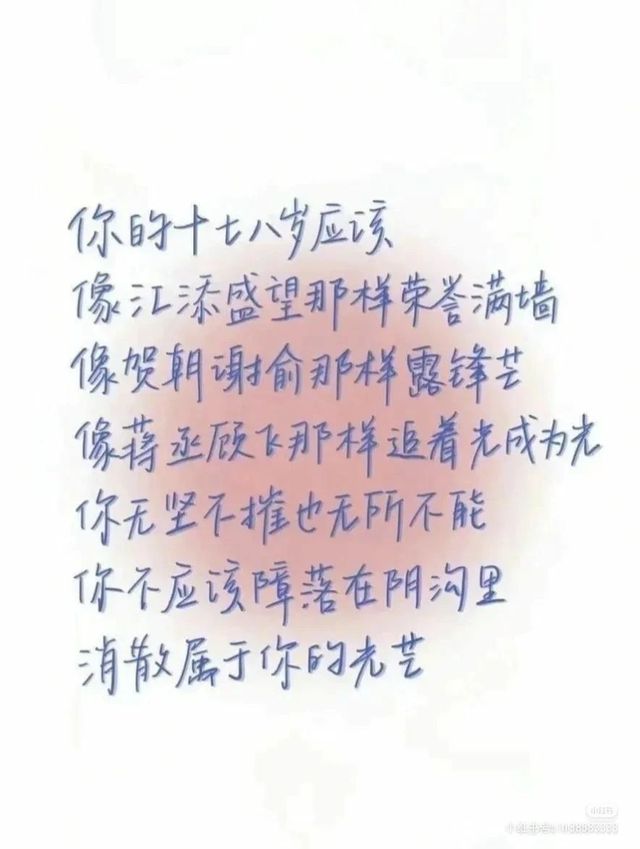 你的十七八岁应该
像江添盛望那样荣誉满墙
像贺朝谢俞那样露锋芒
像蒋丞顾飞那样追着光成为光
你无坚不摧也无所不能
你不应该障落在阴沟里
消散属于你的光芒
小红书